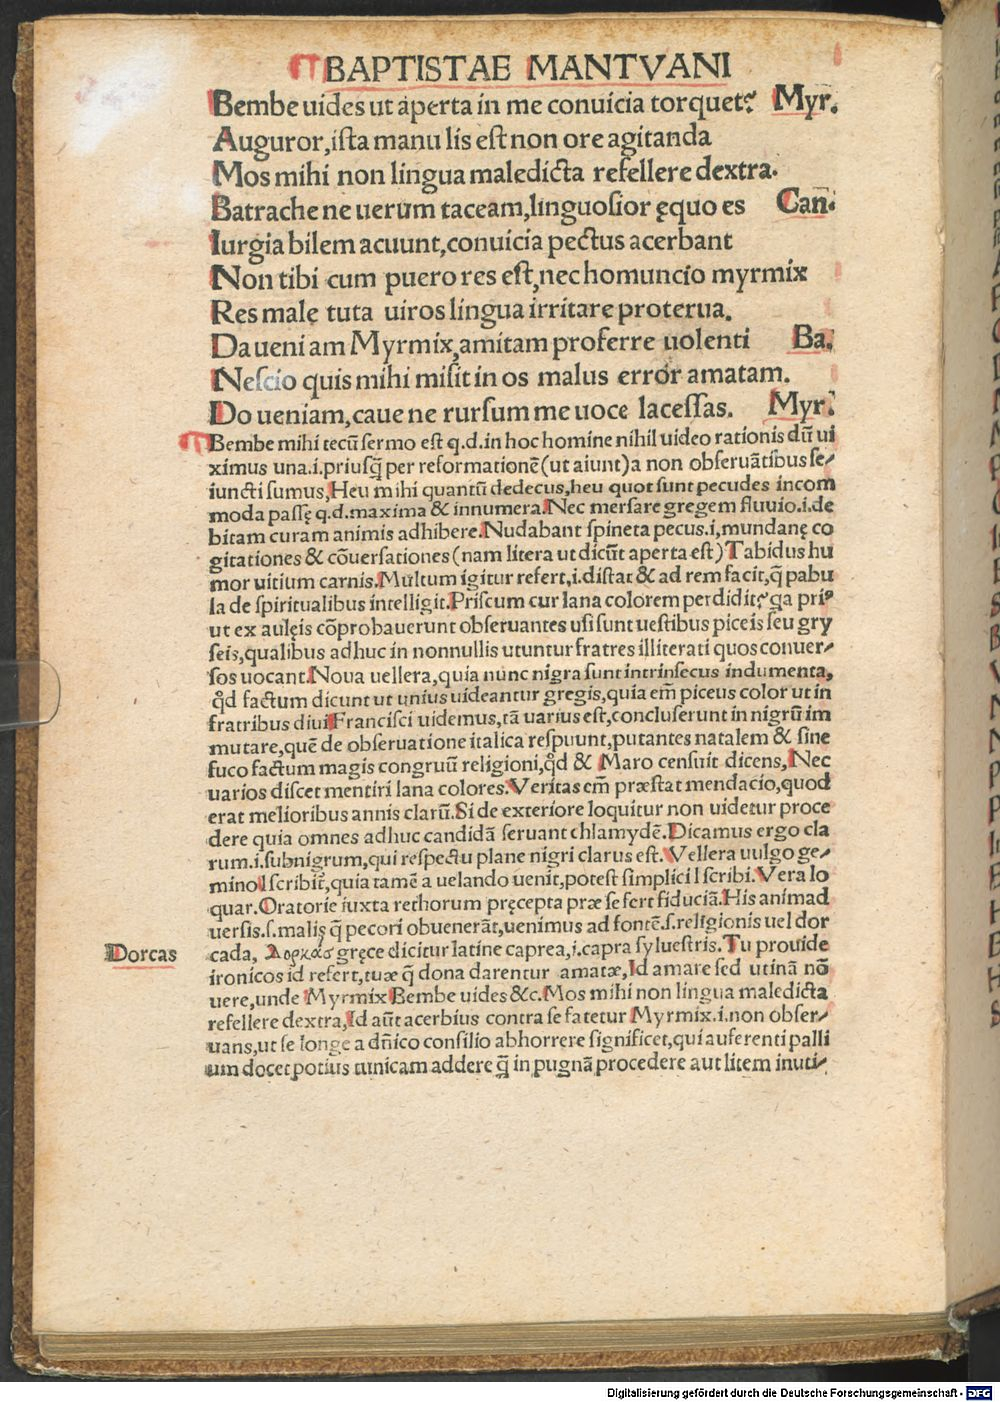 BAPTISTAE MANTVANI
Bembe uides ut aperta in me conuicia torquet? Myr.
Auguror,ista manu lis est non ore agitanda
Mos mihi non lingua maledicta refellere dextra.
Batrache ne uerum taceam,linguosior ęquo es Cañ.
Iurgia bilem acuunt,conuicia pectus acerbant
Non tibi cum puero res est,nec homuncio myrmix
Res male tuta uiros lingua irritare proterua.
Da ueniam Myrmix,amitam proferre uolenti Ba.
Nescio quis mihi misit in os malus error amatam.
Do ueniam,caue ne rursum me uoce lacessas. Myr.
Bembe mihi tecū sermo est q.d.in hoc homine nihil uideo rationis dū ui
ximus una.i.priusq̄ per reformationē(ut aiunt)a non obseruātibus se⸗
iuncti sumus,Heu mihi quantū dedecus,heu quot sunt pecudes incom
moda passę q.d.maxima & innumera.Nec mersare gregem fluuio.i.de
bitam curam animis adhibere.Nudabant spineta pecus.i,mundanę co
gitationes & cōuersationes(nam litera ut dicūt aperta est)Tabidus hu
mor uitium carnis.Multum igitur refert,i.distat & ad rem facit,q̄ pabu
la de spiritualibus intelligit.Priscum cur lana colorem perdidit?ga pri⁹
ut ex aulęis cōprobauerunt obseruantes usi sunt uestibus piceis seu gry
seis,qualibus adhuc in nonnullis utuntur fratres illiterati quos conuer⸗
sos uocant.Noua uellera,quia nunc nigra sunt intrinsecus indumenta,
qd̄ factum dicunt ut unius uideantur gregis,quia em̄ piceus color ut in
fratribus diui Francisci uidemus,tā uarius est,concluserunt in nigrū im
mutare,quē de obseruatione italica respuunt,putantes natalem & sine
fuco factum magis congruū religioni,qd̄ & Maro censuit dicens,Nec
uarios discet mentiri lana colores.Veritas em̄ præstat mendacio,quod
erat melioribus annis clarū.Si de exteriore loquitur non uidetur proce
dere quia omnes adhuc candidā seruant chlamydē.Dicamus ergo cla
rum.i.subnigrum,qui respectu plane nigri clarus est.Vellera uulgo ge⸗
mino l scribit̄,quia tamē a uelando uenit,potest simplici l scribi.Vera lo
quar.Oratorie iuxta rethorum pręcepta præ se fert fiduciā.His animad
uersis.s.malis q̄ pecori obuenerāt,uenimus ad fontē.s.religionis uel dor
Dorcas
cada, Δορκὰσ gręce dicitur latine caprea,i.capra syluestris.Tu prouide
ironicos id refert,tuæ q̄ dona darentur amatæ,Id amare sed utinā nō
uere,unde Myrmix Bembe uides &c.Mos mihi non lingua maledicta
refellere dextra,Id aūt acerbius contra se fatetur Myrmix.i.non obser⸗
uans,ut se longe a dn̄ico consilio abhorrere significet,qui auferenti palli
um docet potius tunicam addere q̄ in pugnā procedere aut litem inuti⸗
Digitalisierung gefördert durch die Deutsche Forschungsgemeinschaft - DFG